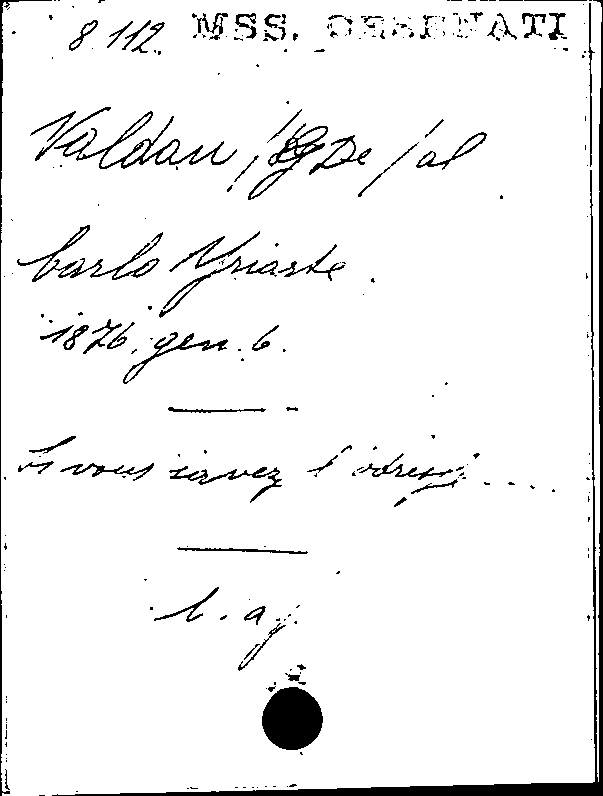 8 112. MSS. CESENATI
Valdau, De / al
Carlo Yriarte.
1876, gen. 6.
Si vous savez l'adresse ....
l. a f.